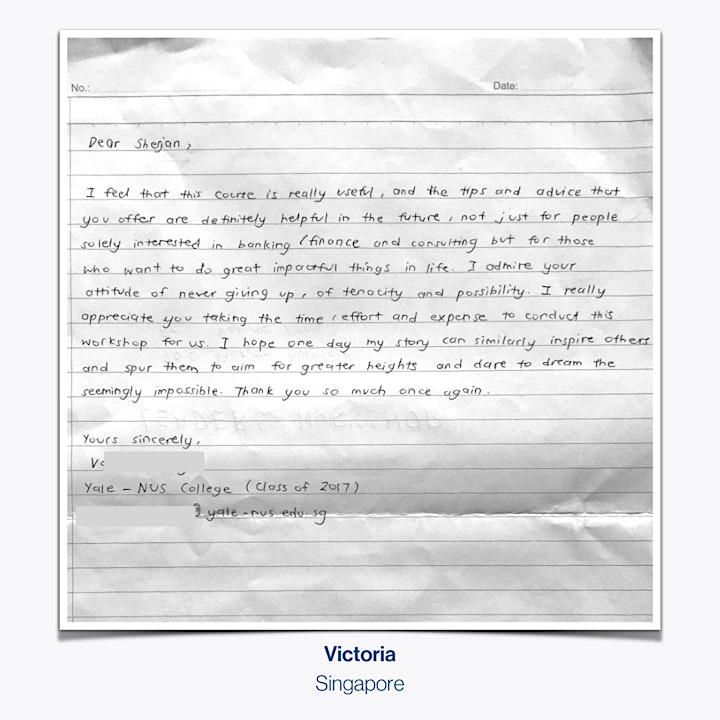 No.:
Date:
Dear Shejan,
I feel that this course is really useful, and the tips and advice that
you offer are definitely helpful in the future, not just for people
solely interested in banking/finance and consulting but for those
who want to do great impactful things in life. I admire your
attitude of never giving up, of tenacity and possibility. I really
appreciate you taking the time, effort and expense to conduct this
workshop for us. I hope one day my story can similarly inspire others
and spur them to aim for greater heights and dare to dream the
seemingly impossible. Thank you so much once again.
Yours sincerely,
Yale - NUS College (Class of 2017)
yale-nus.edu.sg
Victoria
Singapore